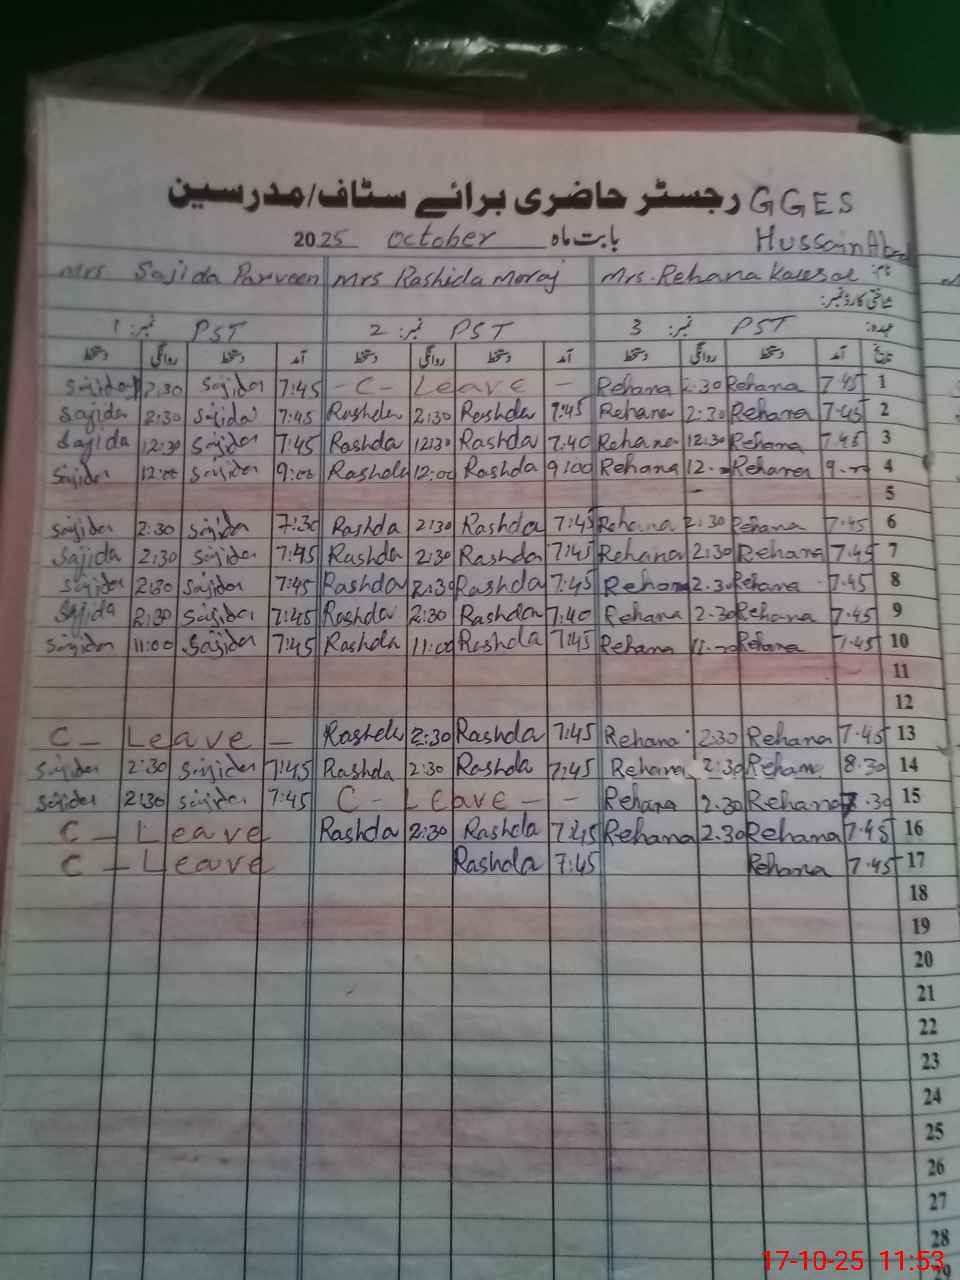 رجسٹر حاضری برائے سٹاف/مدرسین GGES
بابت ماہ October 2025 Hussain Abad
Mrs Sajida Parveen Mrs Rashida Meraj Mrs. Rehana Kausar نام
شناختی کارڈ نمبر:
1 نمبر: PST 2 نمبر: PST 3 نمبر: PST عہدہ:
دستخط روانگی دستخط آمد دستخط روانگی دستخط آمد دستخط روانگی دستخط آمد تاریخ
Sajida 2:30 Sajida 7:45 - C - Leave - Rehana 2.30 Rehana 7.45 1
Sajida 2:30 Sajida 7:45 Rashda 2:30 Rashda 7:45 Rehana 2:30 Rehana 7.45 2
Sajida 12:30 Sajida 7:45 Rashda 12:30 Rashda 7:40 Rehana 12.30 Rehana 7.45 3
Sajida 12:00 Sajida 9:00 Rashda 12:00 Rashda 9:00 Rehana Rehana 4
- 5
Sajida 2:30 Sajida 7:30 Rashda 2:30 Rashda 7:45 Rehana 2:30 Rehana 7.45 6
Sajida 2:30 Sajida 7:45 Rashda 2:30 Rashda 7:45 Rehana 2:30 Rehana 7.45 7
Sajida 2:30 Sajida 7:45 Rashda 2:30 Rashda 7:45 Rehana 2.30 Rehana 7.45 8
Sajida 2:30 Sajida 7:45 Rashda 2:30 Rashda 7:40 Rehana 2.30 Rehana 7.45 9
Sajida 11:00 Sajida 7:45 Rashda 11:00 Rashda 7:45 Rehana Rehana 7.45 10
11
12
C - Leave - Rashda 2:30 Rashda 7:45 Rehana 2:30 Rehana 7.45 13
Sajida 2:30 Sajida 7:45 Rashda 2:30 Rashda 7:45 Rehana 2:30 Rehana 8.30 14
Sajida 2:30 Sajida 7:45 C - Leave - - Rehana 2.30 Rehana 7.30 15
C - Leave Rashda 2:30 Rashda 7:45 Rehana 2.30 Rehana 7.45 16
C - Leave Rashda 7:45 Rehana 7.45 17
18
19
20
21
22
23
24
25
26
27
28
29
17-10-25 11:53